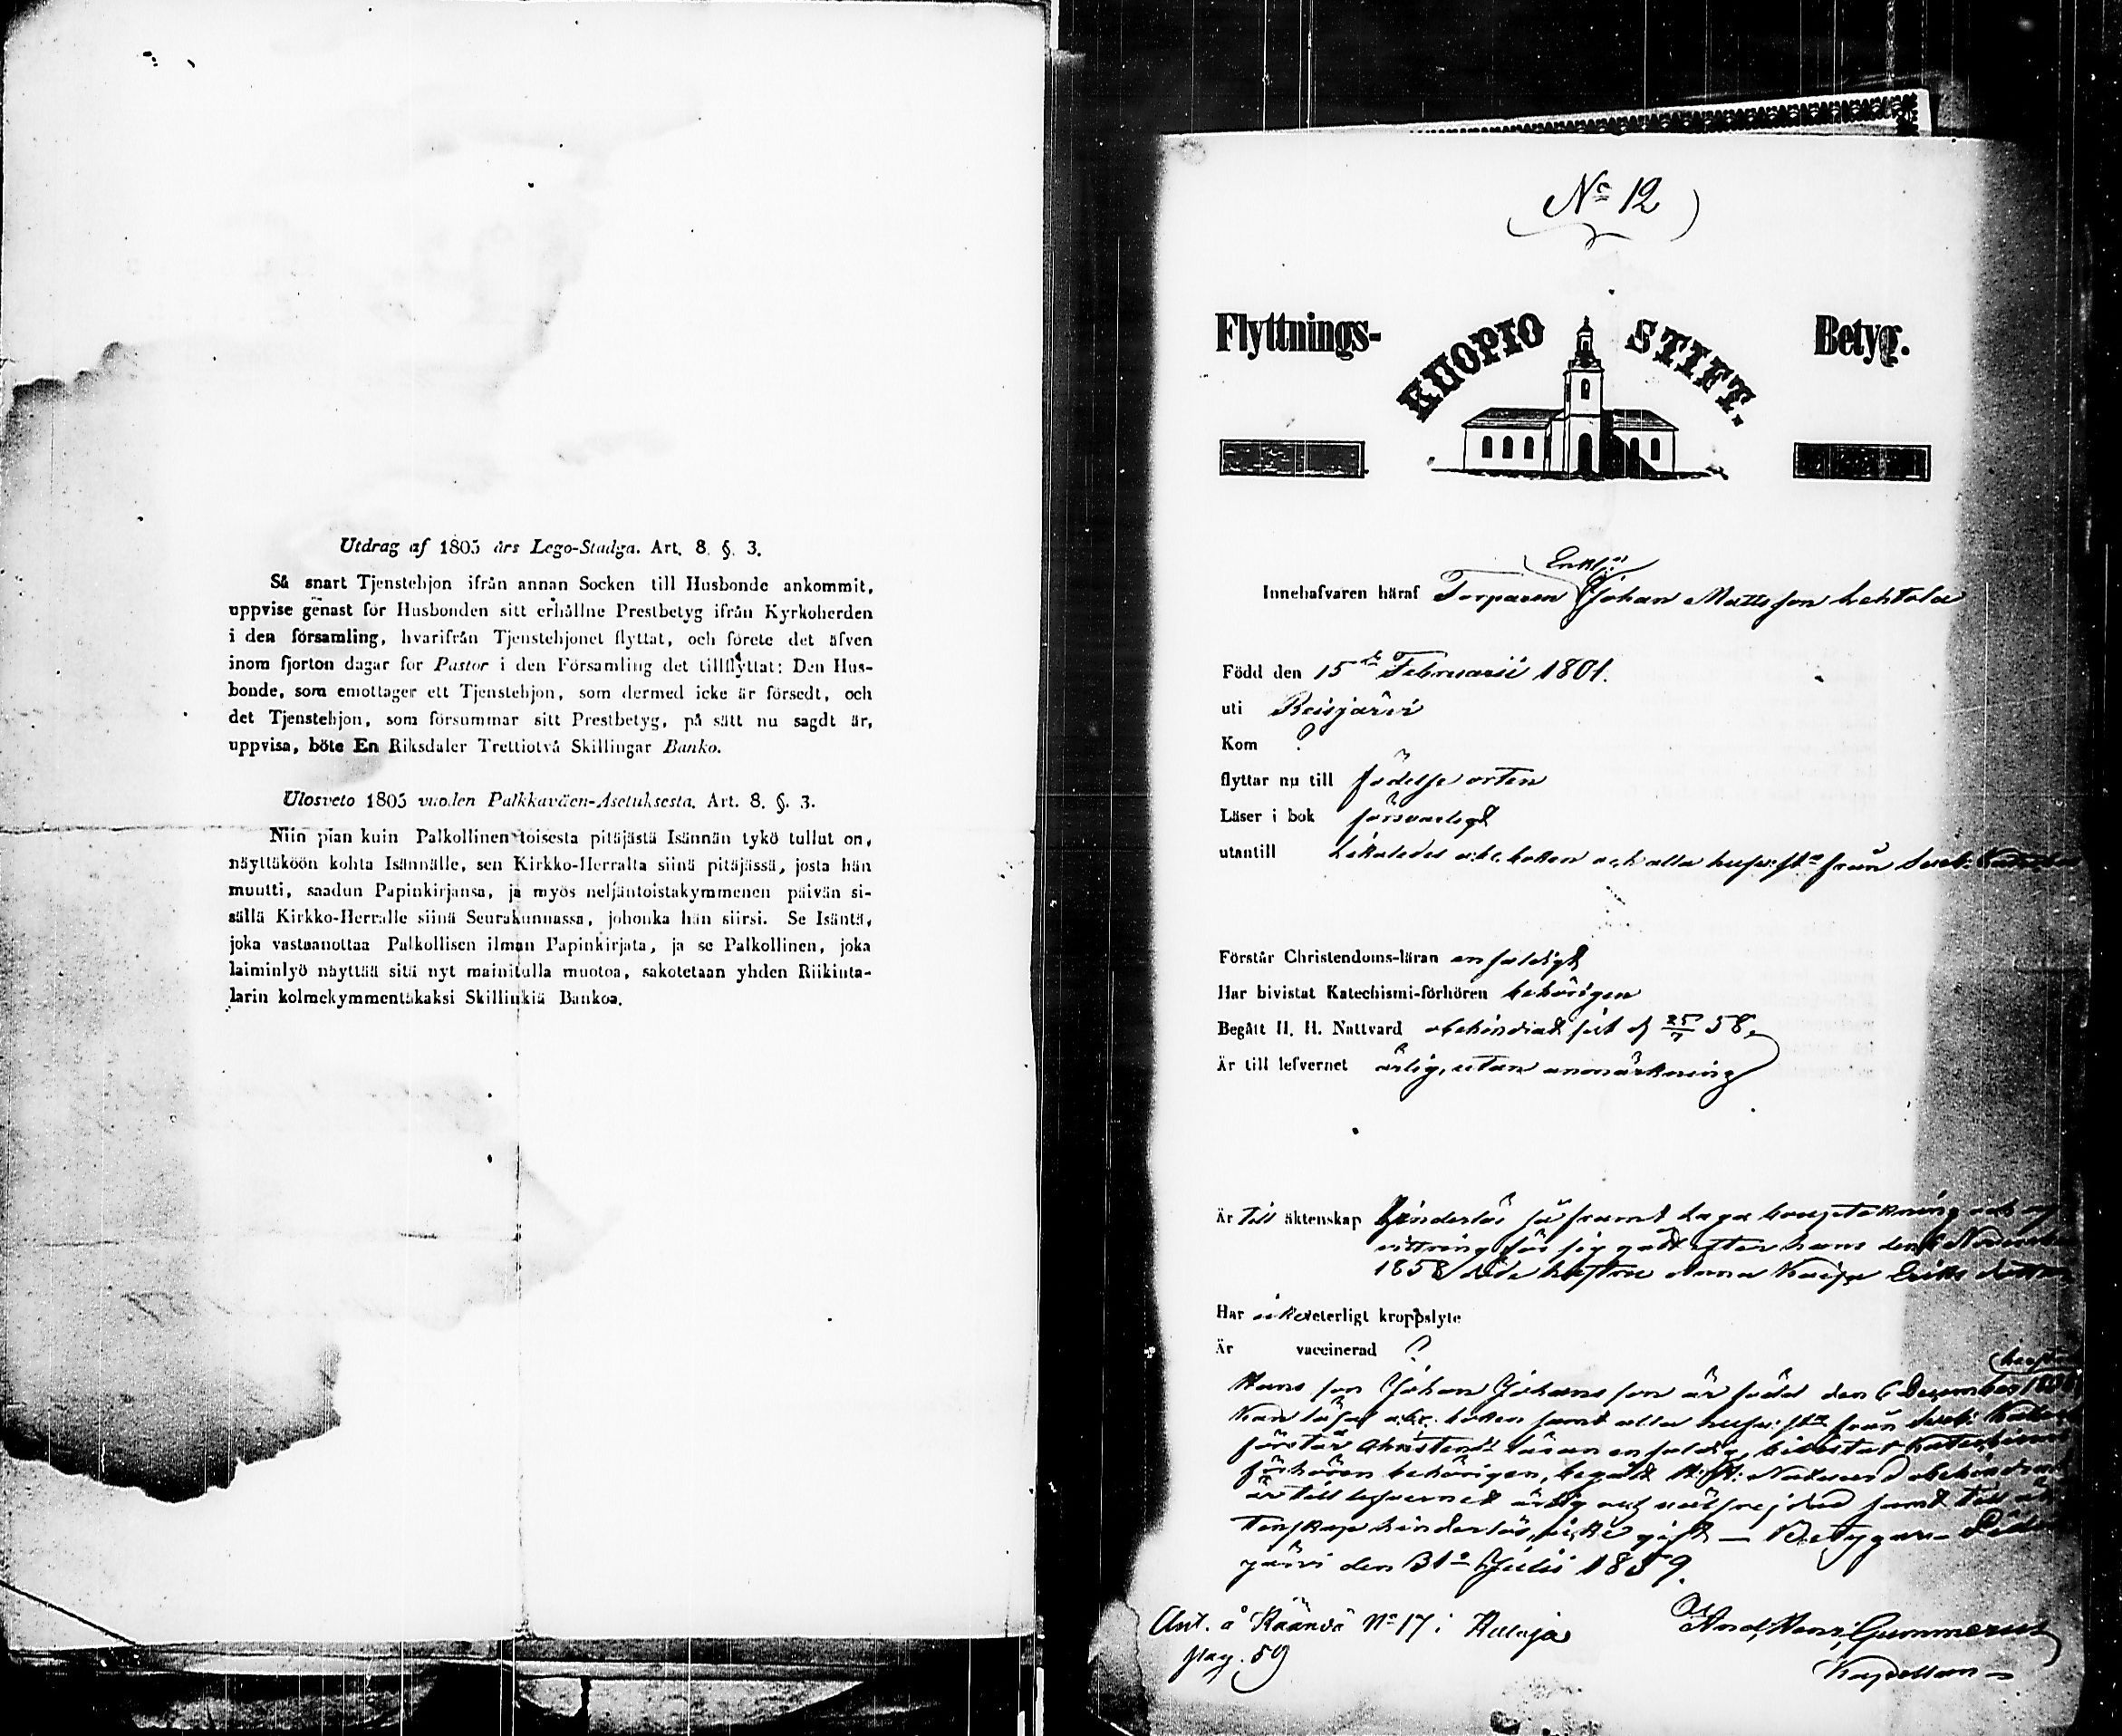 Utdrag af 1805 års Lego-Stadga. Art. 8. §. 3.
Så snart Tjenstehjon ifrån annan Socken till Husbonde ankommit,
uppvise genast för Husbonden sitt erhållne Prestbetyg ifrån Kyrkoherden
i den församling, hvarifrån Tjenstehjonet flyttat, och förete det äfven
inom fjorton dagar för Pastor i den Församling det tillflyttat: Den Hus-
bonde, som emottager ett Tjenstehjon, som dermed icke är försedt, och
det Tjenstehjon, som försummar sitt Prestbetyg, på sätt nu sagdt är,
uppvisa, böte En Riksdaler Trettiotvå Skillingar Banko.
Ulosveto 1805 vuoden Palkkaväen-Asetuksesta. Art. 8. §. 3.
Niin pian kuin Palkollinen toisesta pitäjästä Isännän tykö tullut on,
näyttäköön kohta Isännälle, sen Kirkko-Herralta siinä pitäjässä, josta hän
muutti, saadun Papinkirjansa, ja myös neljäntoistakymmenen päivän si-
sällä Kirkko-Herralle siinä Seurakunnassa, johonka hän siirsi. Se Isäntä,
joka vastaanottaa Palkollisen ilman Papinkirjata, ja se Palkollinen, joka
laiminlyö näyttää sitä nyt mainitulla muotoa, sakotetaan yhden Riikinta-
larin kolmekymmentäkaksi Skillinkiä Bankoa.
No 12
Flyttnings- KUOPIO STIFT. Betyg.
Enkl:
Innehafvaren häraf Torparen Johan Mattsson Lehtola
Född den 15de Februarii 1801.
uti Reisjärvi
Kom ?
flyttar nu till födelse orten
Läser i bok försvarligt
utantill Likaledes abc boken och alla husf: st: från Sveb:
Förstår Christendoms-läran enfaldigt
Har bivistat Katechismi-förhören behörigen
Begått H. H. Nattvard obehindrat sist d 25/7 58.
Är till lefvernet ärlig, utan anmärkning
Är till äktenskap hinderlös så framt laga bouptekning och
vittring för sig gått efter hans den 6 November
1858 döde hustru Anna Kaisa Eriks dotter
Har icke veterligt kroppslyte
Är vaccinerad ?
Hans son Johan Johansson är född den 6 December
Kan läsa abc boken samt alla husf: st: från Sveb:
förstår Christend: läran enfaldig, bivistat Katechismi
förhören behörigen, begått H. H. Nattvard obehindrad
är till lefvernet ärlig och välfrejdad samt till äk-
tenskap hinderlös, icke gift — Betygar
järvi den 31 Julii 1859.
And, Henr, Gummerus
Kapellan
Ant. å Räänvä No 17 i
pag. 59